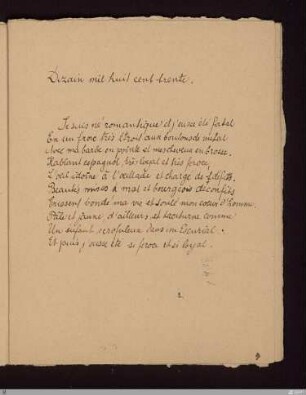 Dizain mil huit cent trente.
Je suis né romantique et j'eusse été fatal
En un frac très étroit aux boutons de métal
Avec ma barbe en pointe et mes cheveux en brosse.
Hablant español, très loyal et très féroce,
L'œil idoine à l'œillade et chargé de défis.
Beautés mises à mal et bourgeois déconfits
Eussent bondé ma vie et soûlé mon cœur d'homme.
Pâle et jaune d'ailleurs, et taciturne comme
Un infant scrofuleux dans un Escurial.
Et puis j'eusse été si féroce et si loyal.